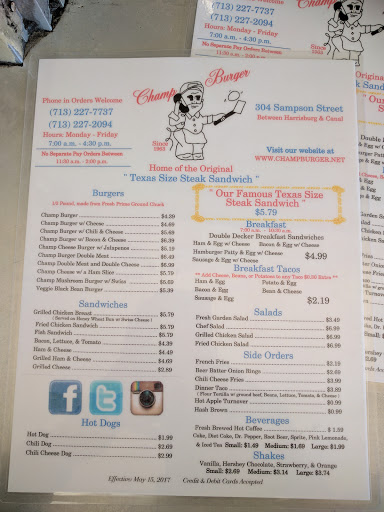 Champ Burger
Phone in Orders Welcome
(713) 227-7737
(713) 227-2094
Hours: Monday - Friday
7:00 a.m. - 4:30 p.m.
No Separate Pay Orders Between
11:30 a.m. - 2:00 p.m.
Since
1963
304 Sampson Street
Between Harrisburg & Canal
Visit our website at
WWW.CHAMPBURGER.NET
Home of the Original
" Texas Size Steak Sandwich "
Burgers
1/3 Pound, made from Fresh Prime Ground Chuck
Champ Burger $4.39
Champ Burger w/ Cheese $4.68
Champ Burger w/ Chili & Cheese $5.68
Champ Burger w/ Bacon & Cheese $6.39
Champ Cheese Burger w/ Jalapenos $5.19
Champ Burger Double Meat $6.49
Champ Double Meat and Double Cheese $6.99
Champ Cheese w/ a Ham Slice $5.79
Champ Mushroom Burger w/ Swiss $5.69
Veggie Black Bean Burger $5.39
Sandwiches
Grilled Chicken Breast $5.79
( Served on Honey Wheat Bun w/ Swiss Cheese )
Fried Chicken Sandwich $5.79
Fish Sandwich $5.79
Bacon, Lettuce, & Tomato $4.39
Ham & Cheese $4.49
Grilled Ham & Cheese $4.69
Grilled Cheese $2.89
Hot Dogs
Hot Dog $1.99
Chili Dog $2.69
Chili Cheese Dog $2.99
" Our Famous Texas Size
Steak Sandwich "
$5.79
Breakfast
7:00 a.m. - 10:30 a.m.
Double Decker Breakfast Sandwiches
Ham & Egg w/ Cheese Bacon & Egg w/ Cheese
Hamburger Patty & Egg w/ Cheese $4.99
Sausage & Egg w/ Cheese
Breakfast Tacos
Ham & Egg Potato & Egg
Bacon & Egg Bean & Cheese
Sausage & Egg $2.19
Salads
Fresh Garden Salad $3.49
Chef Salad $6.99
Grilled Chicken Salad $6.99
Fried Chicken Salad $6.99
Side Orders
French Fries $2.19
Beer Batter Onion Rings $2.69
Chili Cheese Fries $3.99
Dinner Taco $2.69
( Flour Tortilla w/ ground beef, Beans, Lettuce, Tomato, & Cheese )
Hot Apple Turnover $1.99
Hash Brown $0.99
Beverages
Fresh Brewed Hot Coffee $ 1.59
Coke, Diet Coke, Dr. Pepper, Root Beer, Sprite, Pink Lemonade,
& Iced Tea Small: $1.69 Medium: $1.89 Large: $1.99
Shakes
Vanilla, Hershey Chocolate, Strawberry, & Orange
Small: $2.69 Medium: $3.14 Large: $3.74
Effective May 15, 2017 Credit & Debit Cards Accepted